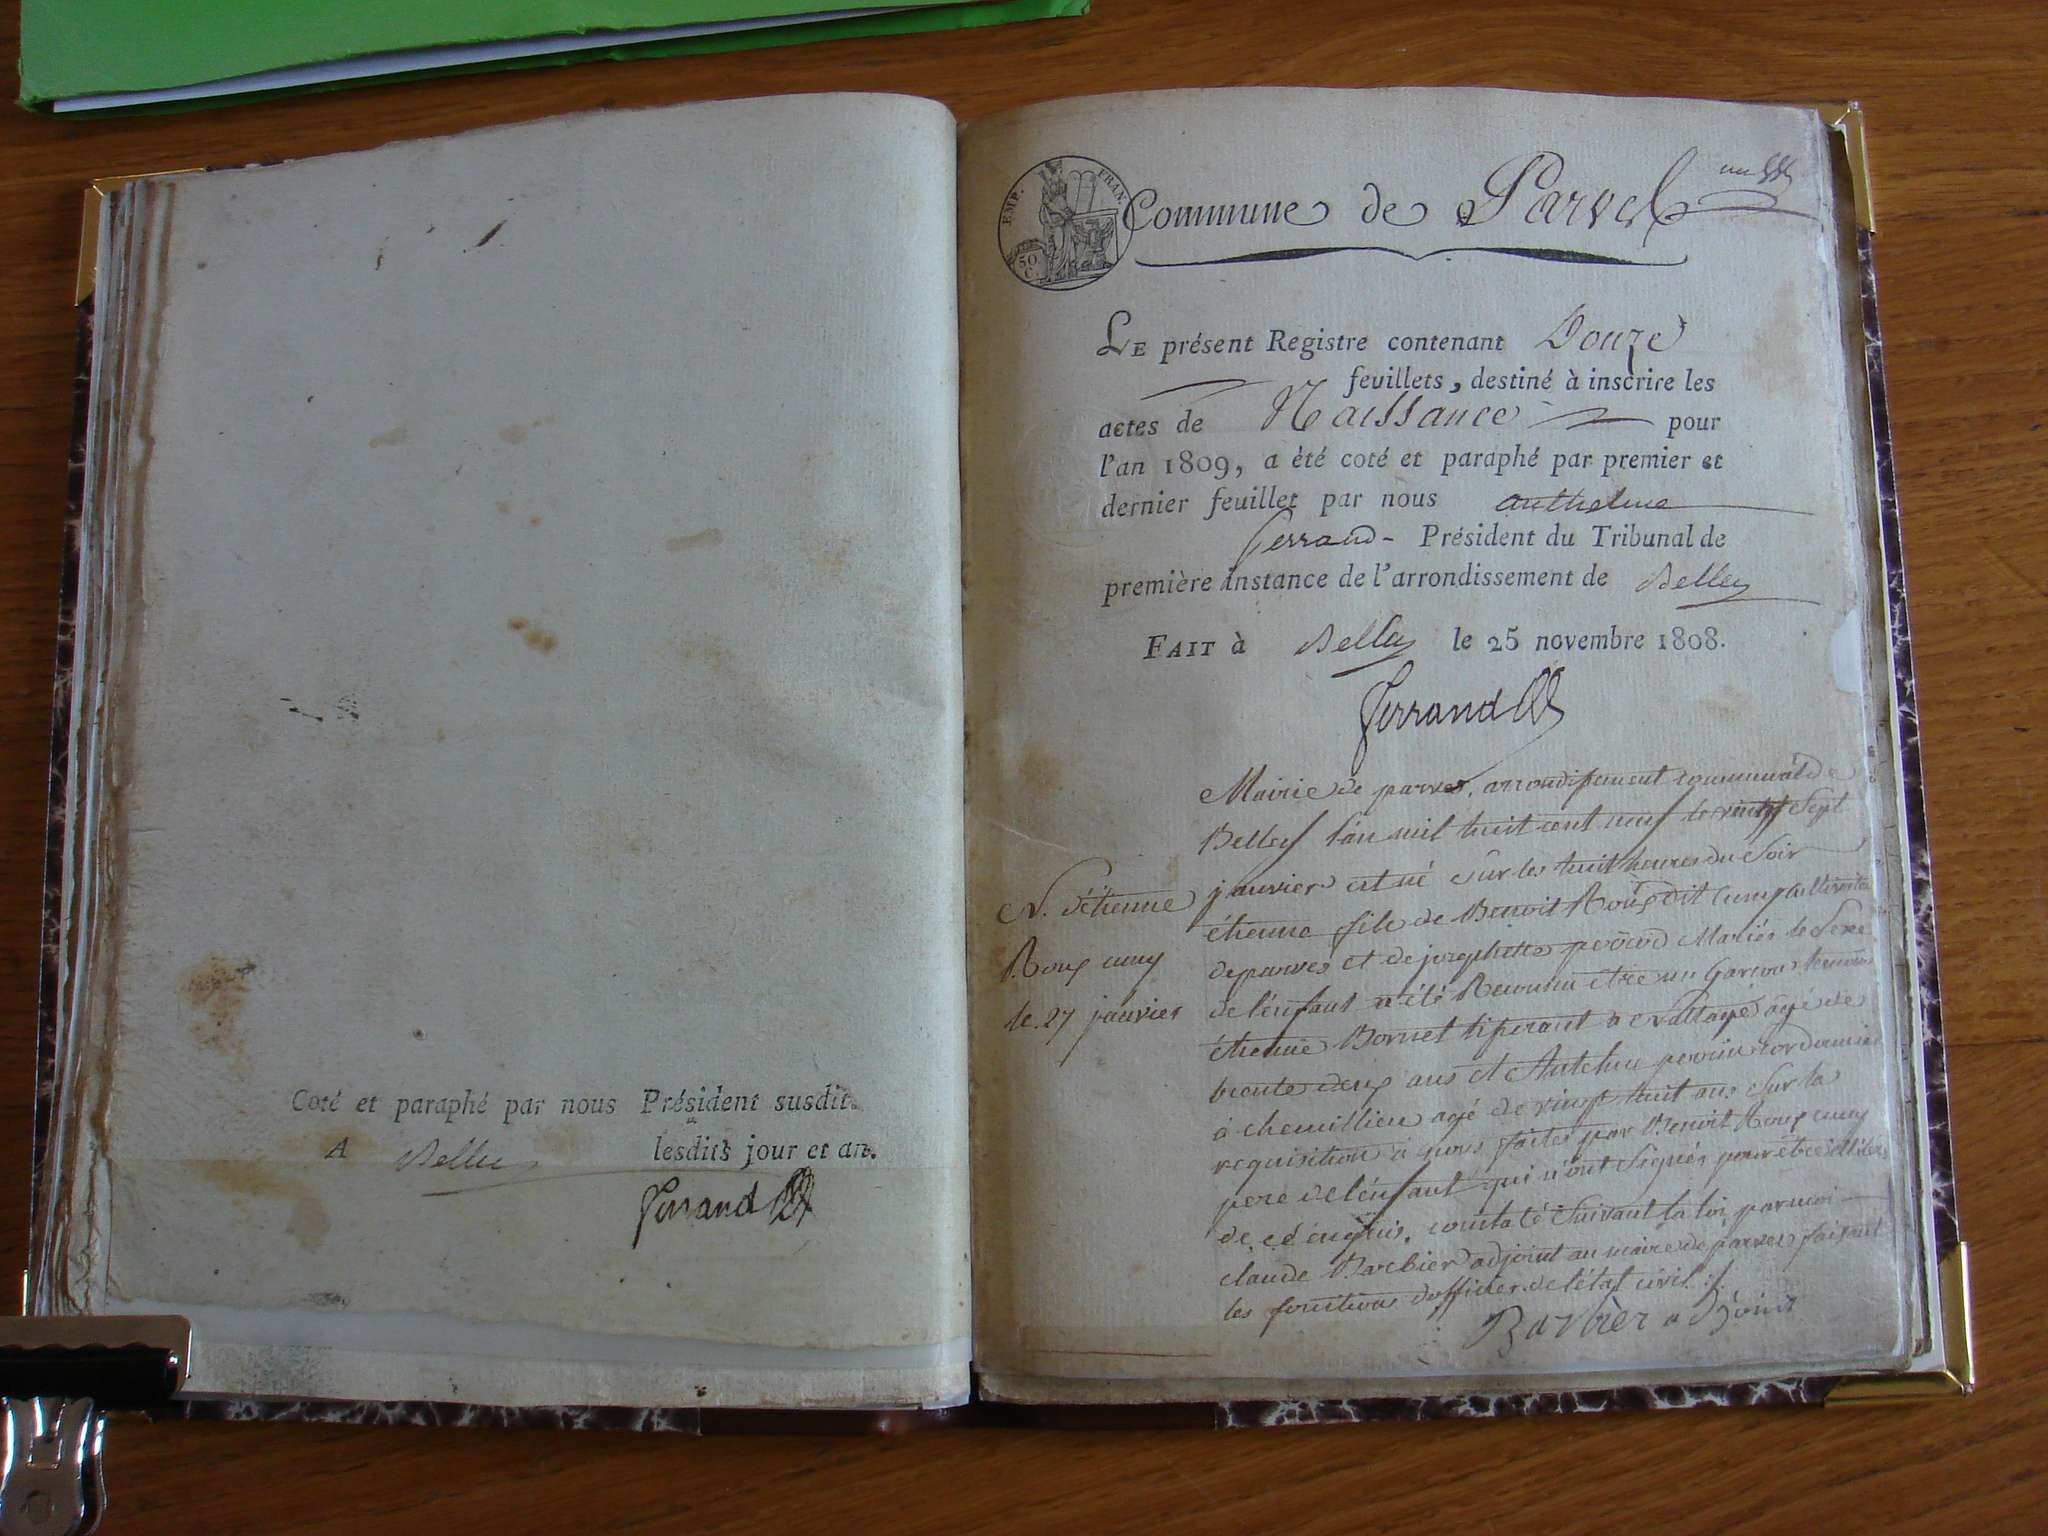 Coté et paraphé par nous Président susdit.
A Belley lesdits jour et an.
Ferrand
EMP. FRAN.
50 C.
un
Commune de Parves
LE présent Registre contenant Douze
feuillets, destiné à inscrire les
actes de Naissance pour
l'an 1809, a été coté et paraphé par premier et
dernier feuillet par nous anthelme
ferrand - Président du Tribunal de
première instance de l'arrondissement de Belley
FAIT à Belley le 25 novembre 1808.
Ferrand
N. d'étienne
Roux cuny
le 27 janvier
Mairie de parves, arrondissement communal de
Belley l'an mil huit cent neuf le vingt Sept
janvier est né sur les huit heures du Soir
étienne fils de Benoit Roux dit cuny
de parves et de josephette Mariés le Sexe
de l'enfant a été Reconnu être un Garçon
étienne Bornet tisserant a âgé de
trente deux ans et Antelme perrin cordonnier
à chemillieu agé de vingt huit ans Sur la
requisition à nous faites par Benoit Roux cuny
pere de l'enfant qui n'ont Signés pour être illiteré
de ce enquis. constaté Suivant la loi par moi
claude Barbier adjoint au maire de parves faisant
les fonctions d'officier de l'état civil ./.
Barbier adjoint